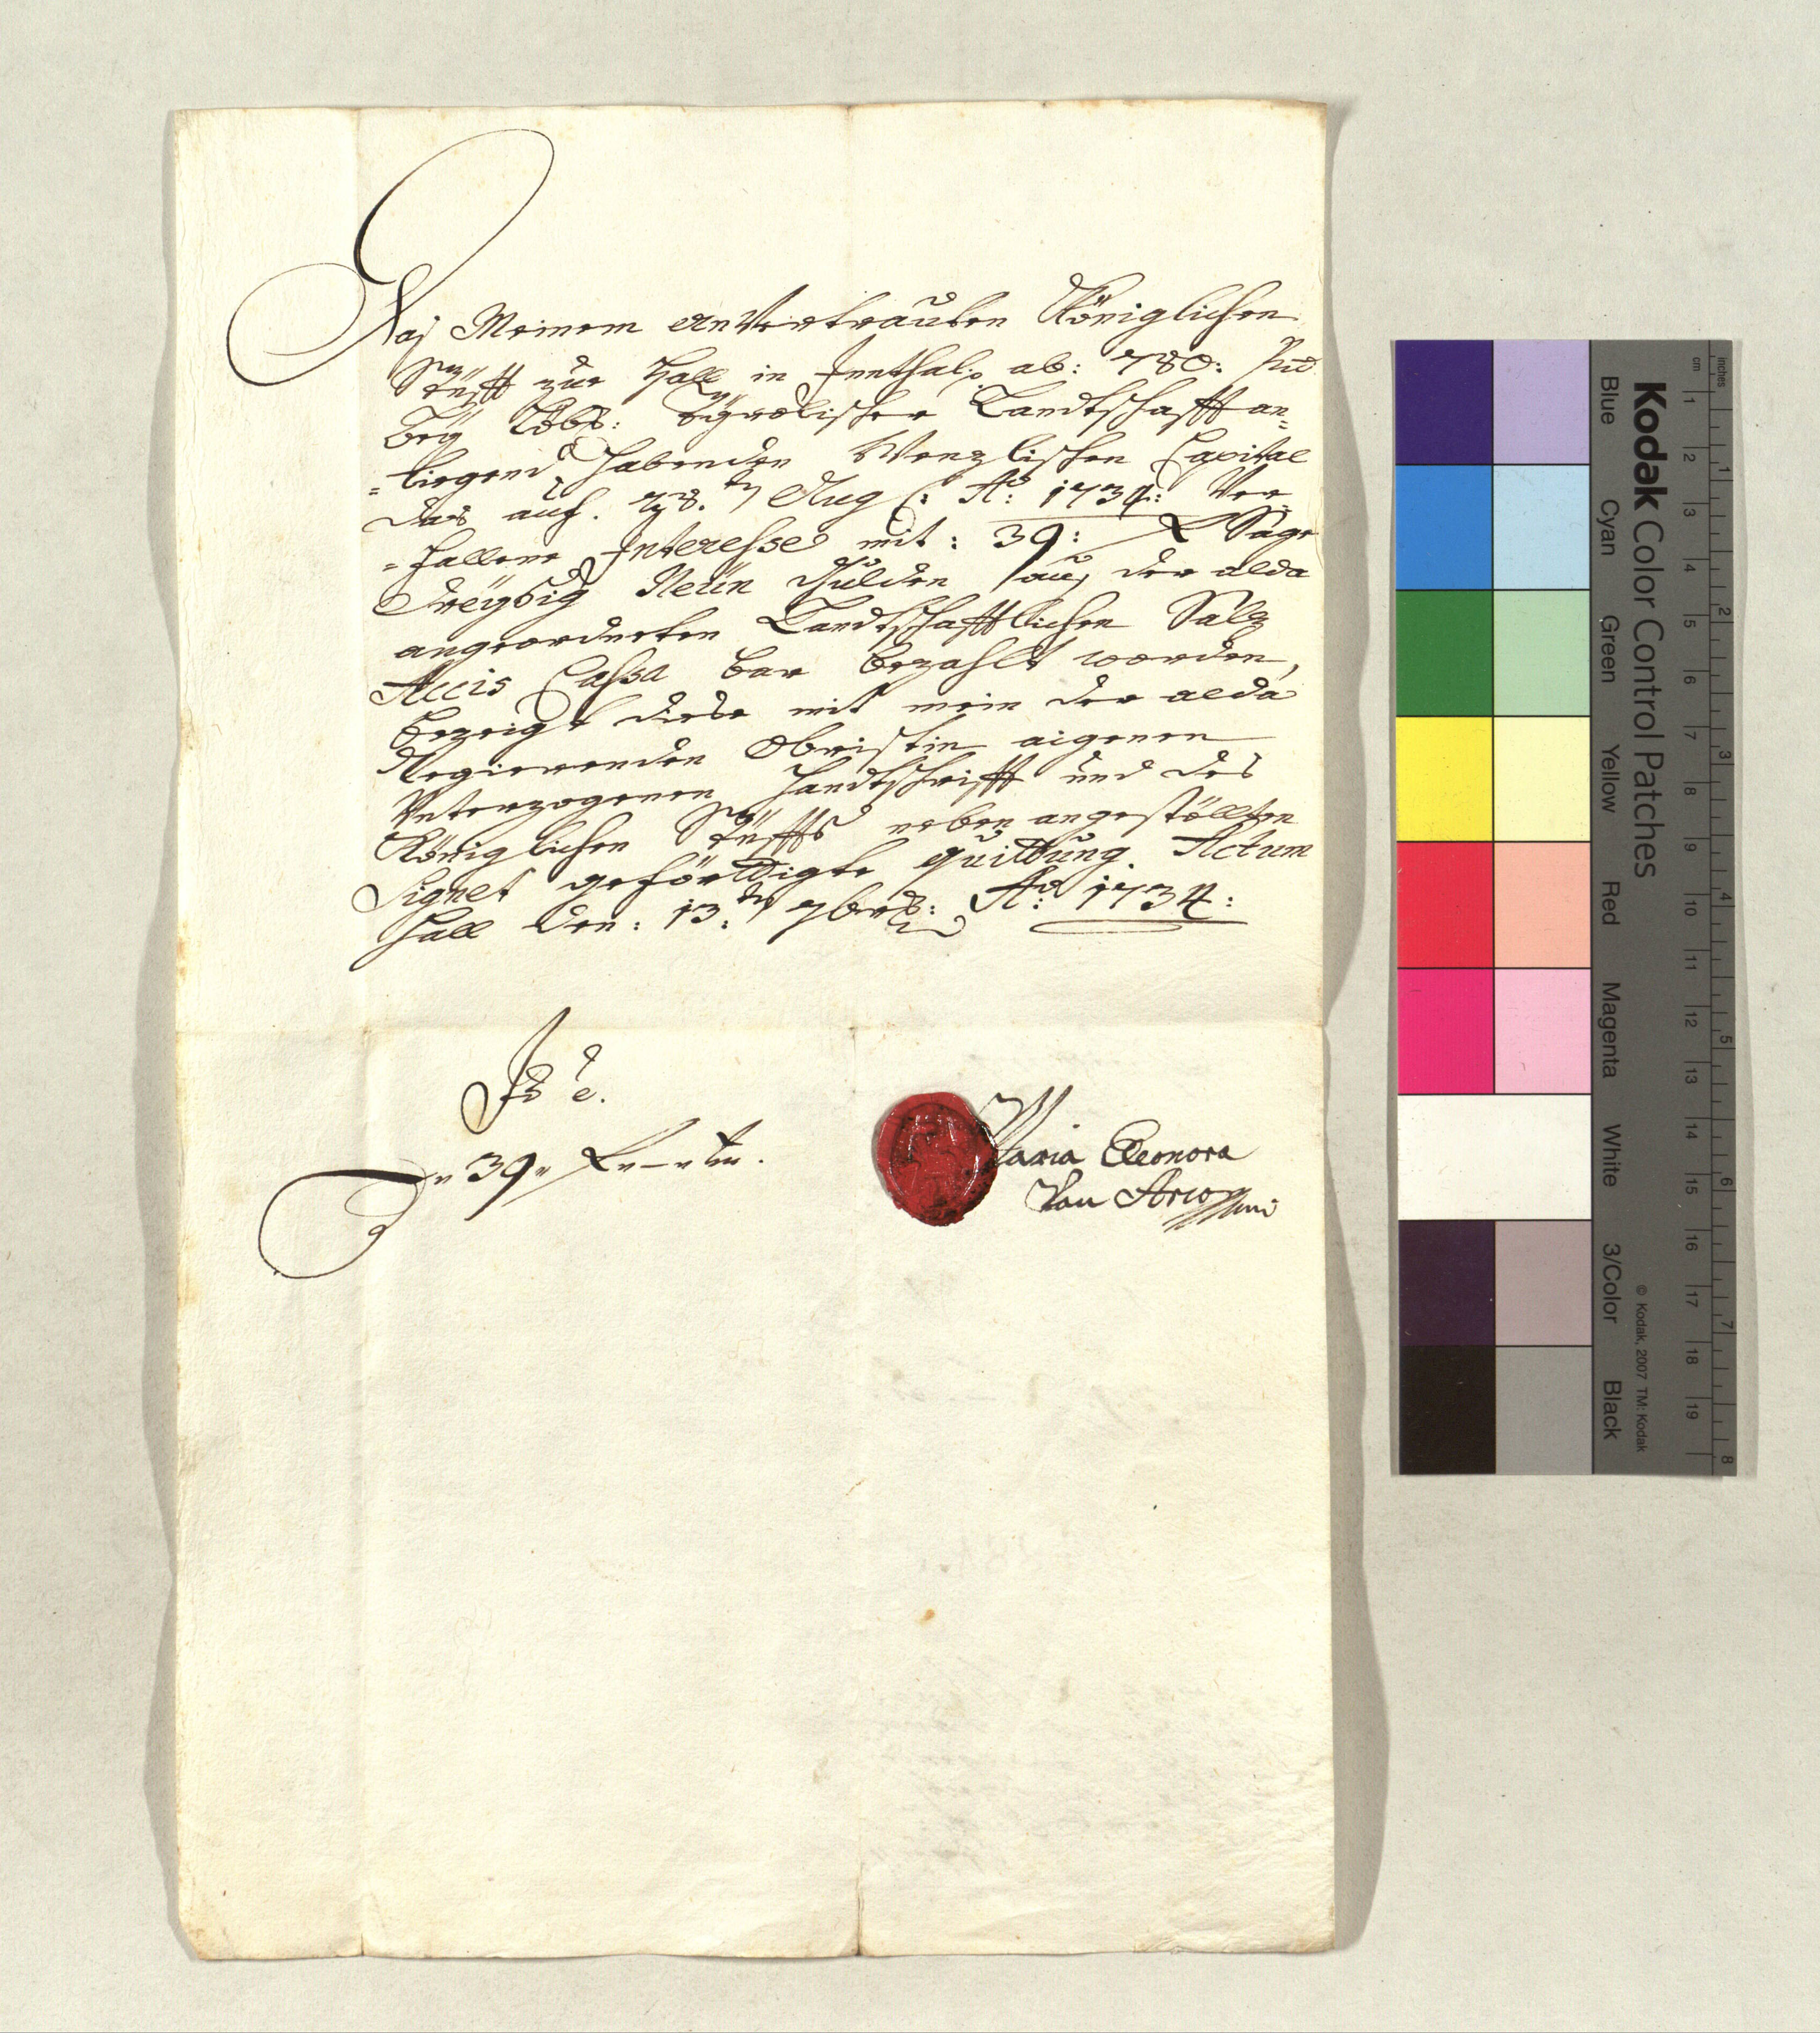 Daß Meinem anVertrauten Königlichen
Stüfft zur Hall in Innthal: ab: 780: 
beÿ Löbl: Tÿrolischer Landtschafft an=
=liegend habenden Wenzlischen Capital
das auf. 28.ten Aug: Aō: 1734: Ver
=fallene Interesse mit: 39: f Sage
Dreÿssig Neün Gulden auß der alda
angeordneten Landtschafftlichen Salz
Accis Cassa bar bezahlt worden,
bezeigt diese mit mein der alda
Regierenden Obristin aigenen
Unterzogenen Handtschrifft und des
Königlichen Stüffts neben angestöllten
Signet geförttigte quittung. Actum
Hall den: 13.ten 7bris: Aō: 1734:
39
Maria Eleonora
Von
Kodak Color Control Patches
Blue Cyan Green Yellow Red Magenta White 3/Color Black
© Kodak, 2007 TM: Kodak
inches 1 2 3 4 5 6 7 8
cm 1 2 3 4 5 6 7 8 9 10 11 12 13 14 15 16 17 18 19